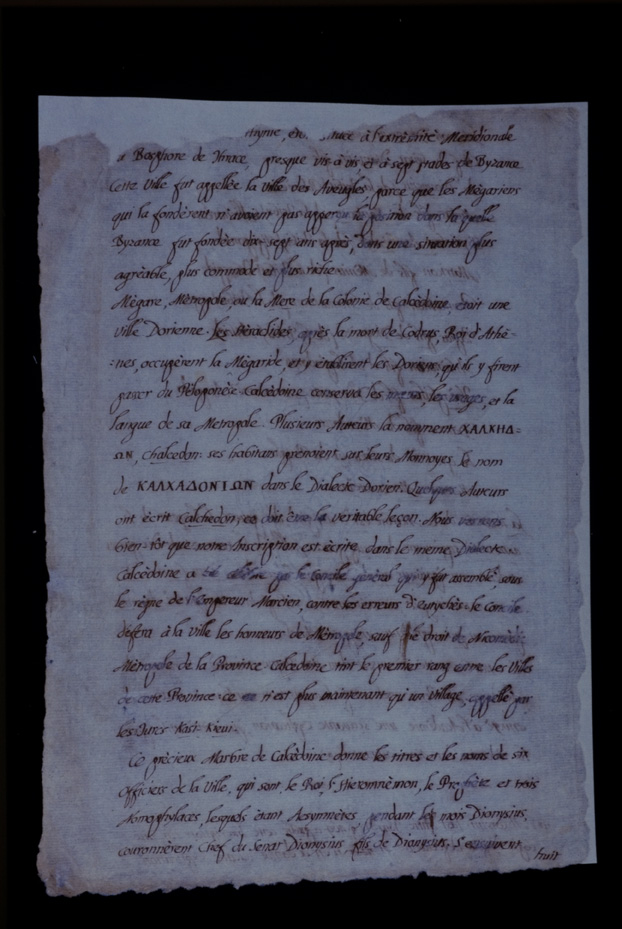 à l'extrèmité Meridionale
Bosphore de Thrace, presque vis à vis et à sept stades de Byzance
Cette Ville fut appellée la Ville des Aveugles parce que les Mégariens
qui la fondèrent n'avoient pas apperçu la position dans la quelle
Byzance fut fondée dix-sept ans après, dans une situation plus
agrèable, plus commode et plus riche
Mégare, Mètropole ou la Mere de la Colonie de Calcèdoine étoit une
Ville Dorienne. Les Hèraclides, après la mort de Codrus, Roy d'Athè-
:nes, occupèrent la Mègaride, et y établirent les Doriens, qu'ils y firent
passer du Pèloponèse. Calcèdoine conserva les mœurs, les usages, et la
langue de sa Metropole. Plusieurs Auteurs la nomment ΧΑΛΚΗΔ-
ΩΝ, Chalcedon: ses habitans prenoient sur leurs Monnoyes le nom
de ΚΑΛΧΑΔΟΝΙΩΝ dans le Dialecte Dorien. Quelques Auteurs
ont ècrit Calchedon, ce doit être la veritable leçon. Nous verrons
bien-tôt que notre Inscription est ècrite dans le meme Dialecte.
Calcèdoine a été cèlèbre par le Concile gènèral qui y fut assemblé, sous
le règne de l'Empereur Marcien, contre les erreurs d'Eutychès. le Concile
défera à la Ville les honneurs de Mètropole, sauf le droit de Nicomèdie
Mètropole de la Province. Calcedoine tint le premier rang entre les Villes
de cette Province. ce n'est plus maintenant qu'un Village, appellé par
les Turcs
Ce prècieux Marbre de Calcèdoine donne les titres et les noms de six
Officiers de la Ville, qui sont le Roi, l'Hieromnèmon, le Prophète et trois
Nomophylaces, lesquels ètant Aesymnètes, pendant le mois Dionysius,
couronnèrent Chef du Senat Dionysius fils de Dionysius. s'ensuivent
huit